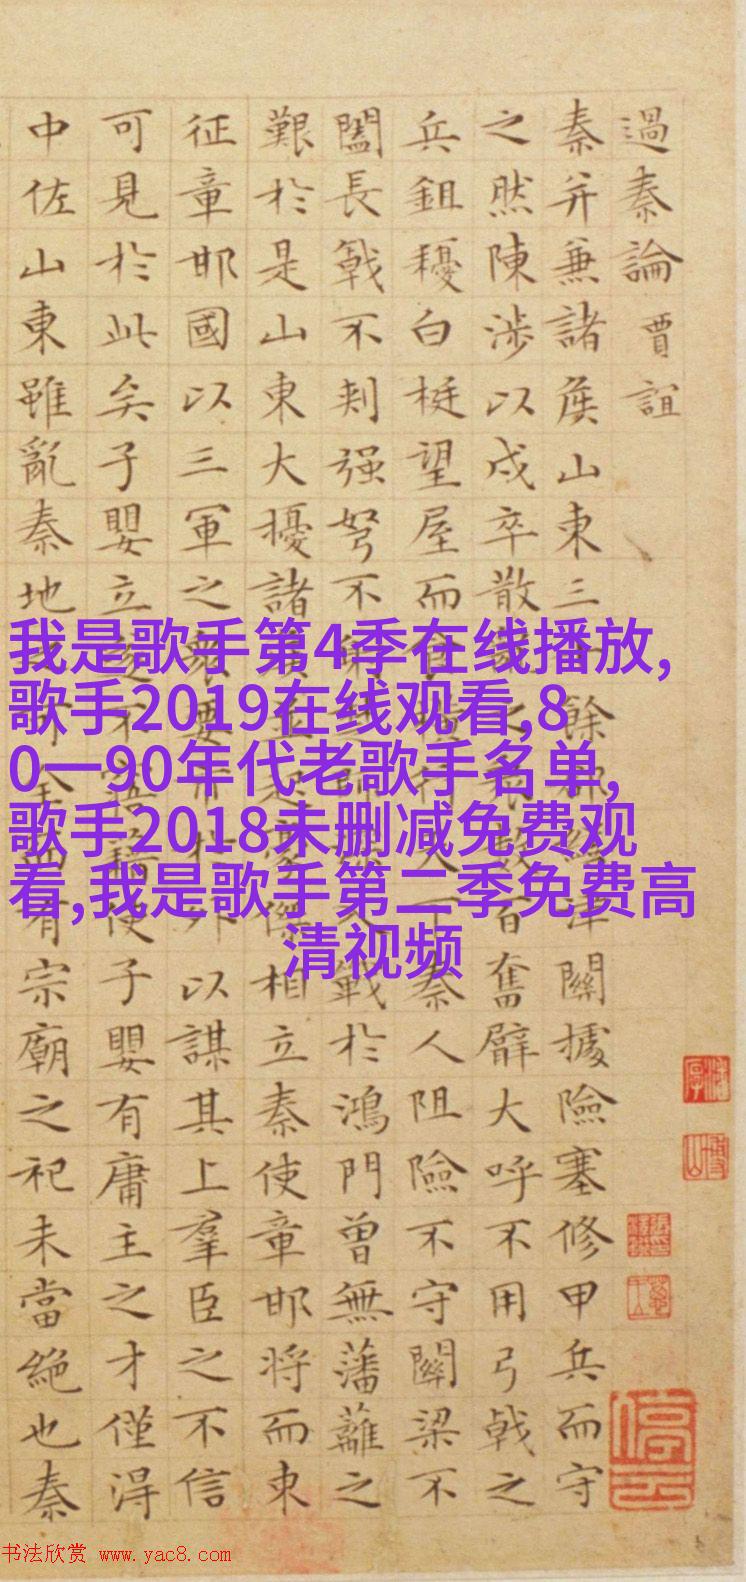 過秦論 賈誼
秦并兼諸侯山東三十餘郡繕津關據險塞修甲兵而守
之然陳涉以戍卒散亂之衆數百奮臂大呼不用弓戟之
兵鉏耰白梃望屋而食橫行天下秦人阻險不守關梁不
闔長戟不刺强弩不射楚師深入戰於鴻門曾無藩籬之
艱於是山東大擾諸侯並起豪傑相立秦使章邯將而東
征章邯國以三軍之衆要市於外以謀其上羣臣之不信
可見於此矣子嬰立遂不悟藉使子嬰有庸主之才僅得
中佐山東雖亂秦地可全而有宗廟之祀未當絶也秦
我是歌手第4季在线播放,
歌手2019在线观看,8
0一90年代老歌手名单,
歌手2018未删减免费观
看,我是歌手第二季免费高
清视频
书法欣赏 www.yac8.com